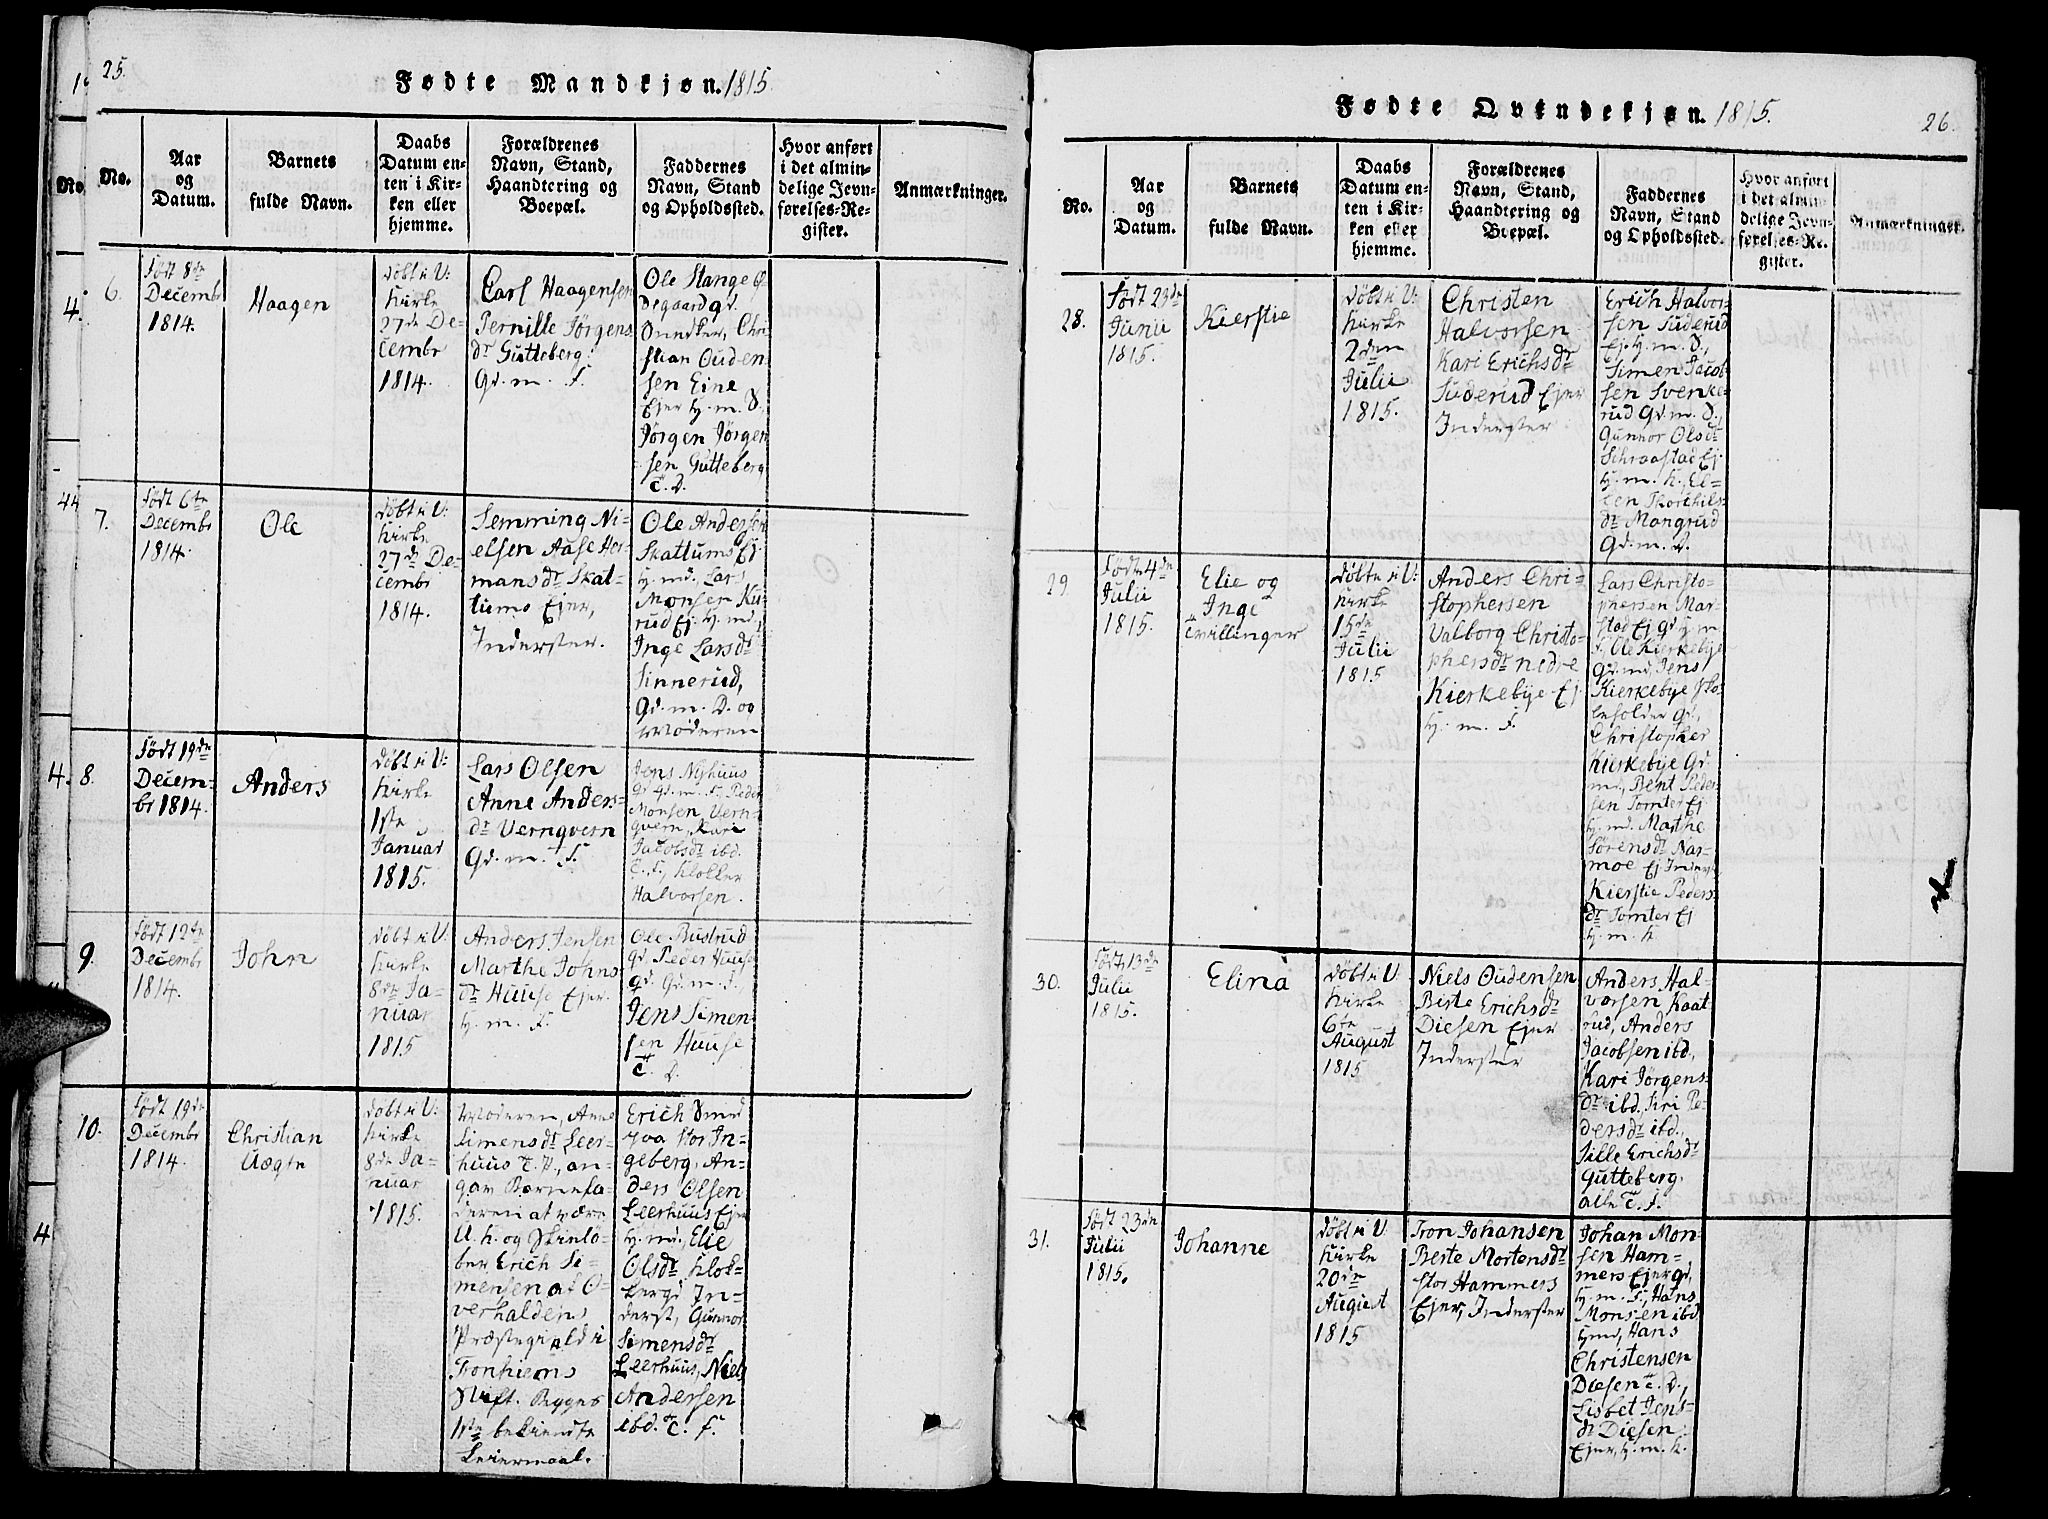 25.
Fødte Mandkjøn. 1815.
No.
Aar
og
Datum.
Barnets
fulde Navn.
Daabs
Datum en-
ten i Kir-
ken eller
hjemme.
Forældrenes
Navn, Stand,
Haandtering og
Boepæl.
Faddernes
Navn, Stand
og Opholdssted.
Hvor anført
i det almin-
delige Jevn-
førelses-Re-
gister.
Anmærkninger.
6.
Født 8de
Decembr
1814.
Haagen
Døbt i V:
Kirke
27de De-
cembr
1814.
Carl Haagensen
Pernille Jørgens
dr Gutteberg
Gd. m. F.
Ole Stange
degaard gd.
Chri-
stian Ouden
sen Eine
Ejer H. m. D.
Jørgen Jørgen
sen Gutteberg
T. D.
7.
Født 6te
Decembr
1814.
Ole
Døbt i V:
Kirke
27de De-
cembr
1814.
Semming Ni-
elsen Aase Her-
mansdr Skat-
tums Ejer,
Inderster.
Ole Andersen
Skattums Ej.
H. md, Lars
Monsen Ku-
rud Ej. H. md,
Inge Larsdr
Sinnerud,
Gd. m. D. og
Moderen
8.
Født 19de
Decem-
br 1814.
Anders
Døbt i V:
Kirke
1ste
Januar
1815.
Lars Olsen
Anne Anders-
dr Vernqvern
Gd. m. F.
Jens Nyhuus
Gd. m. F. Peder
Monsen Vern-
qvern, Kari
Jacobsdr ibd.
T. F., Klokker
Halvorsen.
9.
Født 12te
Decembr
1814.
John
Døbt i V:
Kirke
8de Ja-
nuar
1815
Anders Jensen
Marthe Johns-
dr Huuse Ejer.
H. m. F.
Ole Rustrud
gd. Peder Huuse
gd. Gd. m. F.,
Jens Simen-
sen Huuse
T. D.
10.
Født 19de
Decembr
1814.
Christian
Aagte
Døbt i V:
Kirke
8de Ja-
nuar
1815.
Moderen, Anne
Simensdr Leer-
huus T. P., an-
gav Barnefa-
deren at være
U. K. og Skinlø-
ber Erich Si-
mensen af O-
verhaldens
Præstegjæld i
Tronhiems
Stift. Begges
1ste bekiendte
Leiermaal.
Erich Smed
paa Stor In-
geberg, An-
ders Olsen
Leerhuus Ejer
H. md, Elie
Olsdr Klok-
kergd In-
derst, Gunnor
Simensdr
Leerhuus, Niels
Andersen
ibd. T. F.
Fødte Qvindekjøn. 1815.
26.
No.
Aar
og
Datum.
Barnets
fulde Navn.
Daabs
Datum en-
ten i Kir-
ken eller
hjemme.
Forældrenes
Navn, Stand,
Haandtering og
Boepæl.
Faddernes
Navn, Stand
og Opholdssted.
Hvor anført
i det almin-
delige Jevn-
førelses-Re-
gister.
Anmærkninger.
28.
Født 23de
Junii
1815.
Kierstie
Døbt i V:
Kirke
2den
Julii
1815.
Christen
Halvorsen
Kari Erichsdr
Suderud Ejer
Inderster
Erich Halvor-
sen Suderud
Ej. H. m. D.,
Simen Jacob-
sen Svenke-
rud Gd. m. D.,
Gunnor Olsdr
Schraastad Ej.
H. m. K., El-
len Thorkils-
dr Mangrud
Gd. m. D.
29.
Født 4de
Julii
1815.
Elie og
Inge
Tvillinger
Døbte i V:
Kirke
15de
Julii
1815
Anders Chri-
stophersen
Valborg Christo-
phersdr nedre
Kierkebye Ej.
H. m. F.
Lars Christo-
phersen Mar-
stad Ej. gd. H. m.
F. Ole Kierkebye
Gd. md, Jens
Kierkebye Sko-
leholder gd.,
Christopher
Kierkebye Gd.
md, Bent Peder-
sen Tomter Ej.
H. md. Marthe
Sørensdr Nar-
moe Ej. Inderst
Kierstie Peders-
dr Tomter Ej.
H. m. K.
30.
Født 13de
Julii
1815.
Elina
Døbt i V:
Kirke
6te
August
1815
Niels Oudensen
Birte Erichsdr
Diesen Ejer
Inderster
Anders Hal-
vorsen Kaat-
rud, Anders
Jacobsen ibd.,
Kari Jørgens-
dr ibd. Siri Pe-
dersdr ibd.,
Sille Erichsdr
Gutteberg,
alle T. F.
31.
Født 23de
Julii
1815.
Johanne
Døbt i V:
Kirke
20de
August
1815
Tron Johansen
Berte Mortensdr
Stor Hammers
Ejer, Inderster
Johan Mon-
sen Ham-
mers Ejer gd,
H. m. F., Hans
Monsen ibd
Hmd, Hans
Christensen
Diesen T. D.,
Lisbet Jens-
dr Diesen
Ejer, H. m. K.